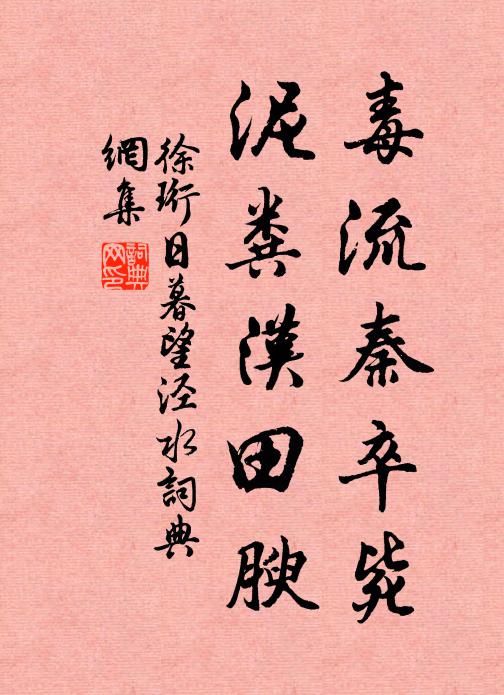 毒流秦卒斃
泥糞漢田腴
徐珩日暮望涇水詞典
網集
詞典網印